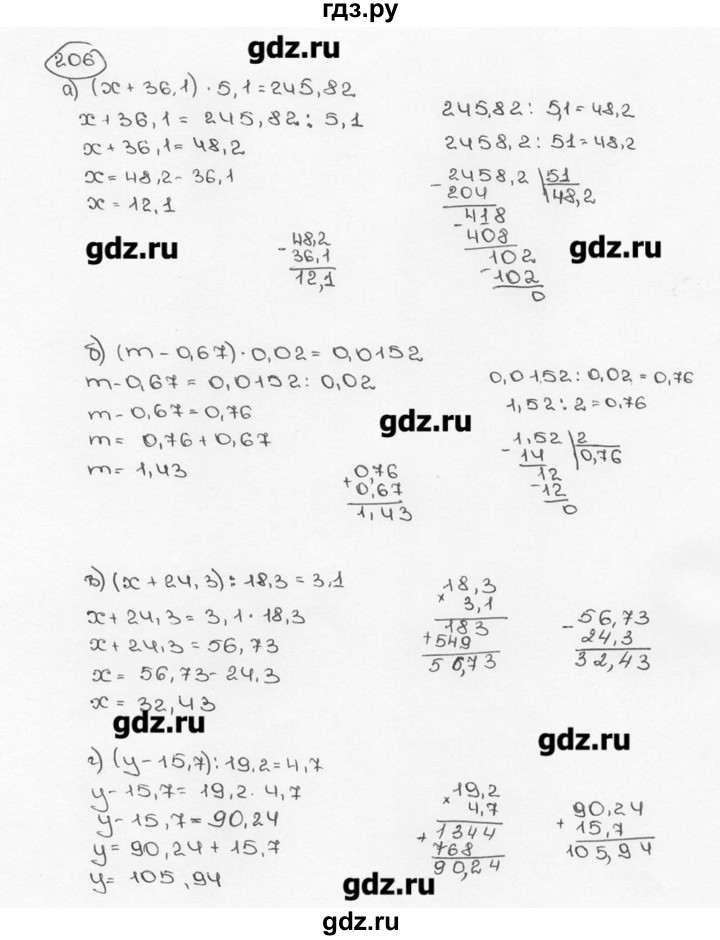 гдз.ру
206
gdz.ru
а) (x + 36,1) · 5,1 = 245,82
x + 36,1 = 245,82 : 5,1
x + 36,1 = 48,2
x = 48,2 - 36,1
x = 12,1
245,82 : 5,1 = 48,2
2458,2 : 51 = 48,2
- 2458,2 | 51
204 | 48,2
- 418
408
102
- 102
0
gdz.ru
- 48,2
36,1
12,1
gdz.ru
б) (m - 0,67) · 0,02 = 0,0152
m - 0,67 = 0,0152 : 0,02
m - 0,67 = 0,76
m = 0,76 + 0,67
m = 1,43
0,0152 : 0,02 = 0,76
1,52 : 2 = 0,76
gdz.ru
- 1,52 | 2
14 | 0,76
12
- 12
0
0,76
+ 0,67
1,43
в) (x + 24,3) : 18,3 = 3,1
x + 24,3 = 3,1 · 18,3
x + 24,3 = 56,73
x = 56,73 - 24,3
x = 32,43
18,3
× 3,1
183
+ 549
56,73
- 56,73
24,3
32,43
gdz.ru
gdz.ru
г) (y - 15,7) : 19,2 = 4,7
y - 15,7 = 19,2 · 4,7
y - 15,7 = 90,24
y = 90,24 + 15,7
y = 105,94
19,2
× 4,7
+ 1344
768
90,24
90,24
+ 15,7
105,94
gdz.ru
gdz.ru